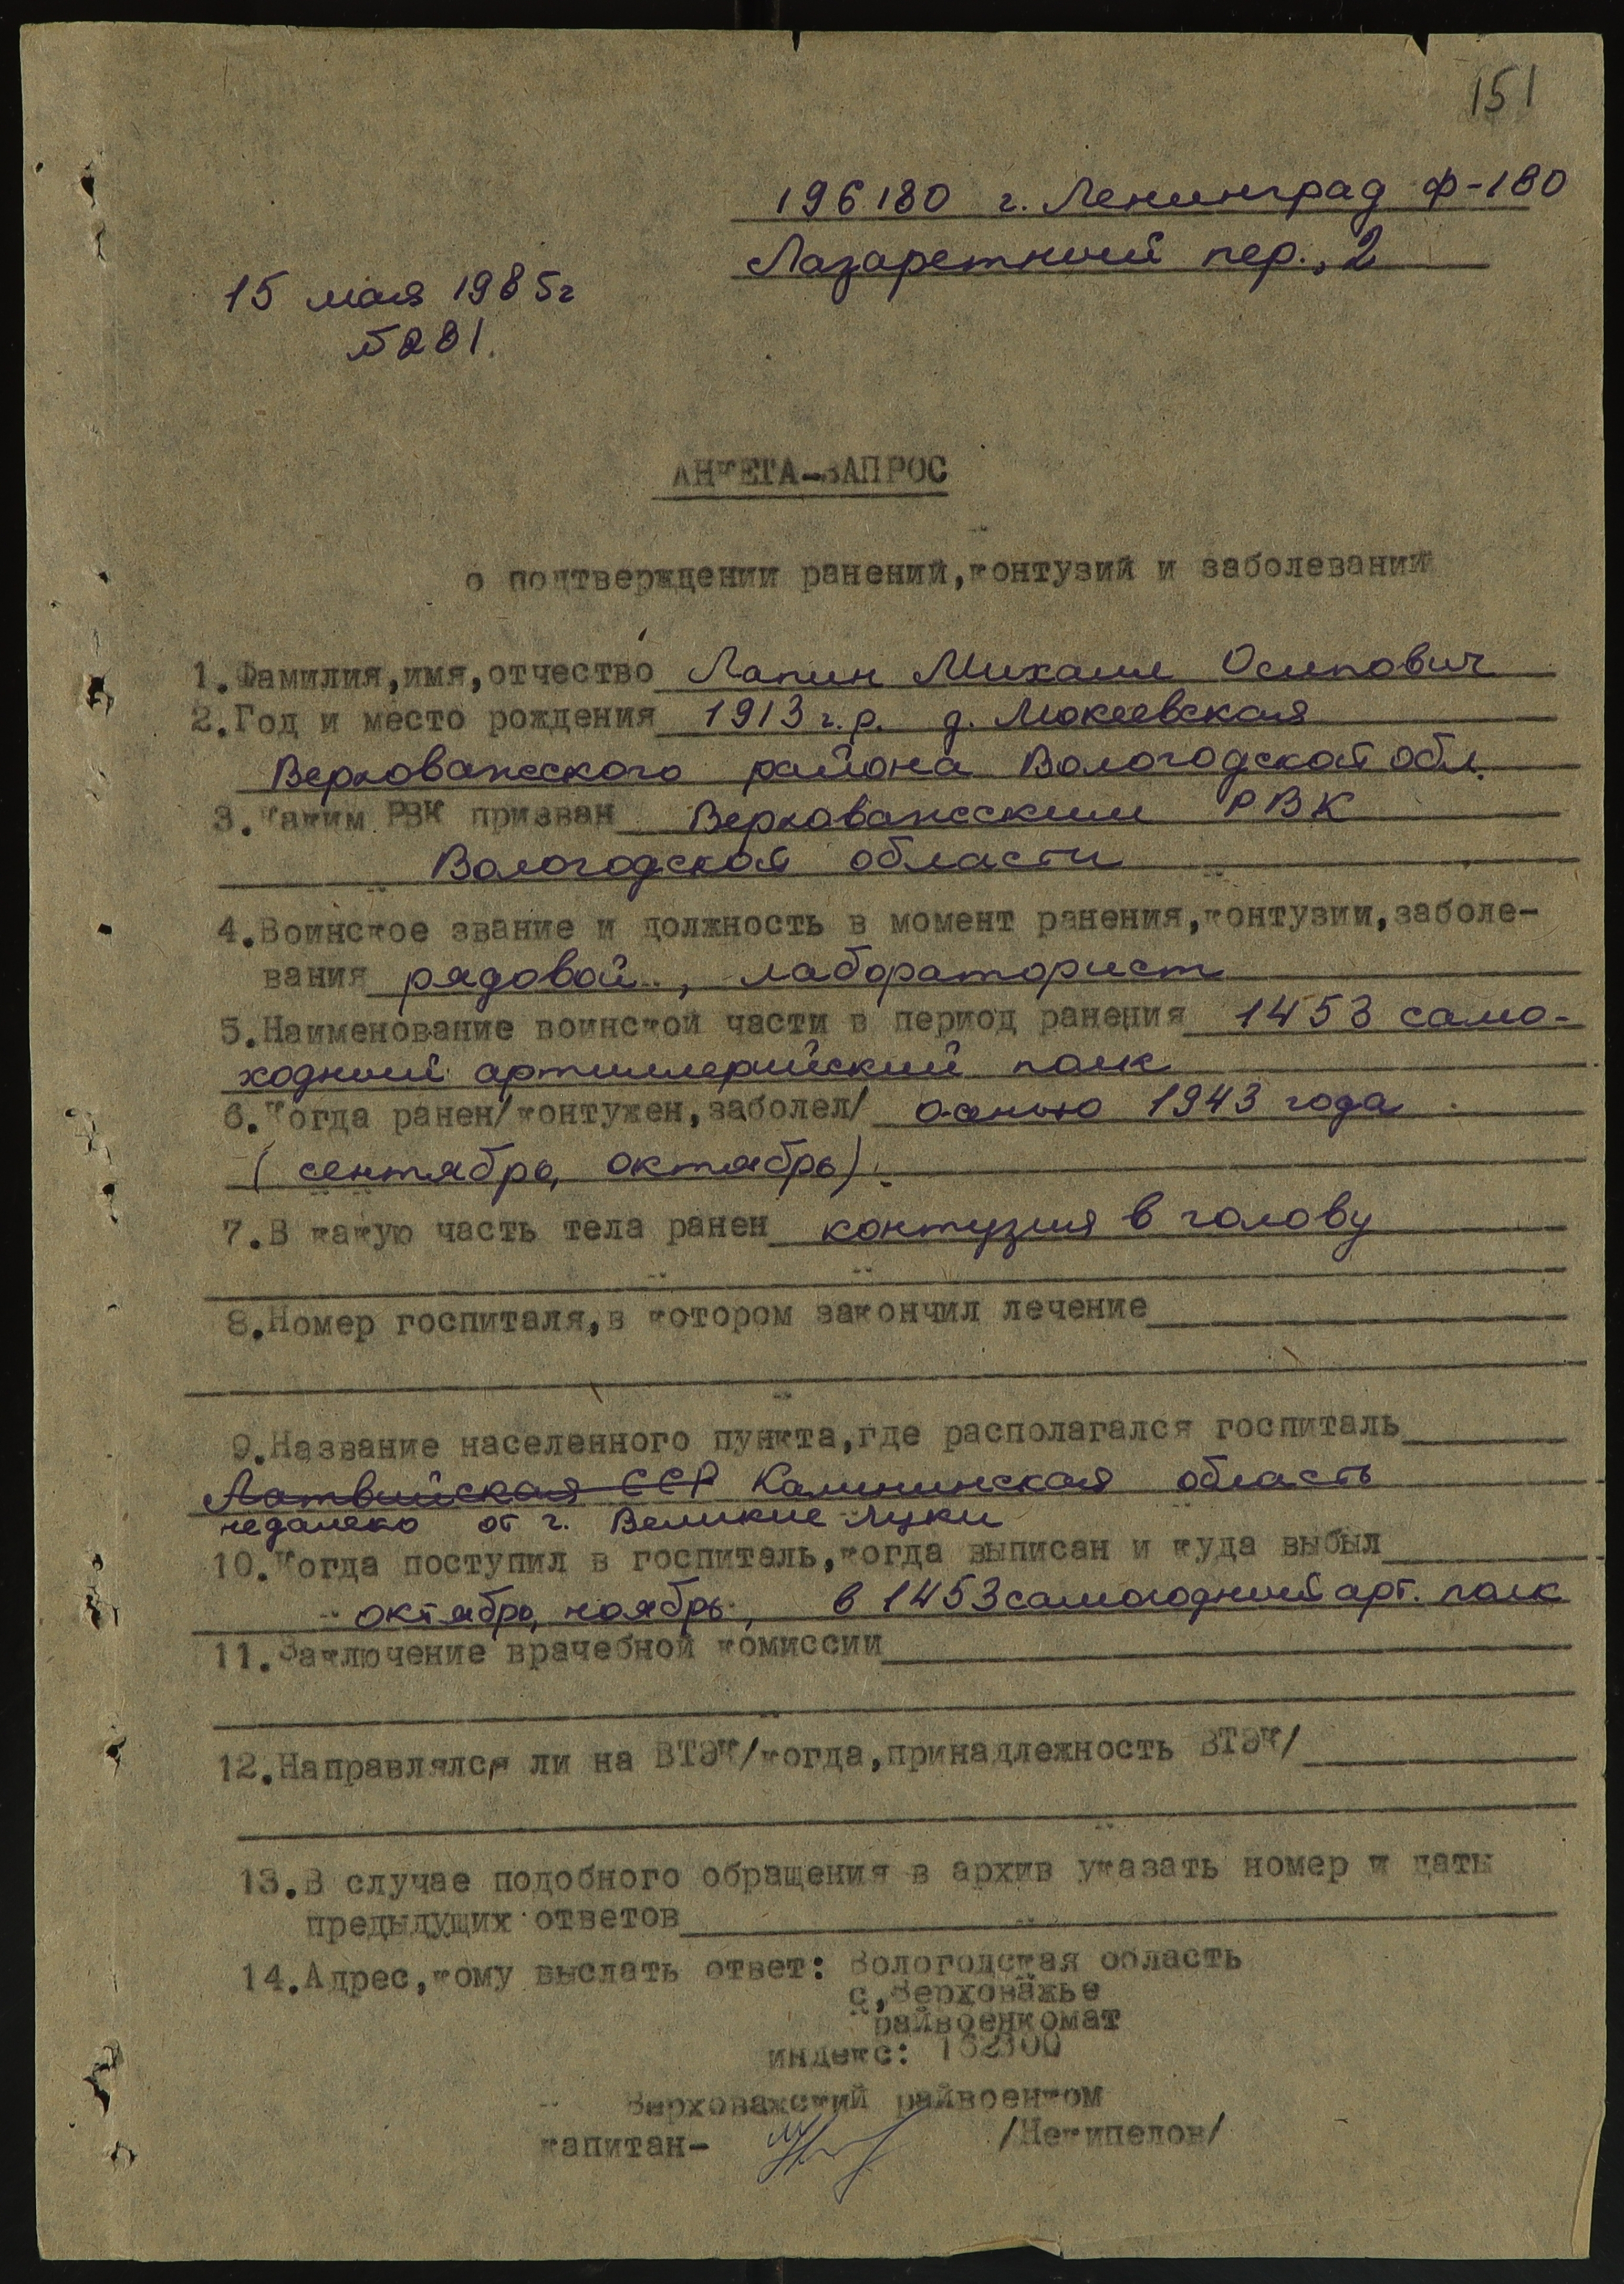 151
196180 г. Ленинград Ф-180
Лазаретный пер., 2
15 мая 1985г
№281.
АНКЕТА-ЗАПРОС
о подтверждении ранений,контузий и заболеваний
1.Фамилия,имя,отчество Лапин Михаил Осипович
2.Год и место рождения 1913 г.р. д. Мокеевская
Верховажского района Вологодской обл.
3.Каким РВК призван Верховажским РВК
Вологодской области
4.Воинское звание и должность в момент ранения,контузии,заболе-
вания рядовой, лабораторист
5.Наименование воинской части в период ранения 1453 само-
ходный артиллерийский полк
6.Когда ранен/контужен,заболел/ осенью 1943 года
(сентябрь, октябрь).
7.В какую часть тела ранен контузия в голову
8.Номер госпиталя,в котором закончил лечение
9.Название населенного пункта,где располагался госпиталь
Латвийская ССР Калининская область
недалеко от г. Великие Луки
10.Когда поступил в госпиталь,когда выписан и куда выбыл
октябрь, ноябрь, в 1453 самоходный арт. полк
11.Заключение врачебной комиссии
12.Направлялся ли на ВТЭК/когда,принадлежность ВТЭК/
13.В случае подобного обращения в архив указать номер и даты
предыдущих ответов
14.Адрес,кому выслать ответ: Вологодская область
с,Верховажье
райвоенкомат
индекс: 162300
Верховажский райвоенком
капитан- /Некипелов/